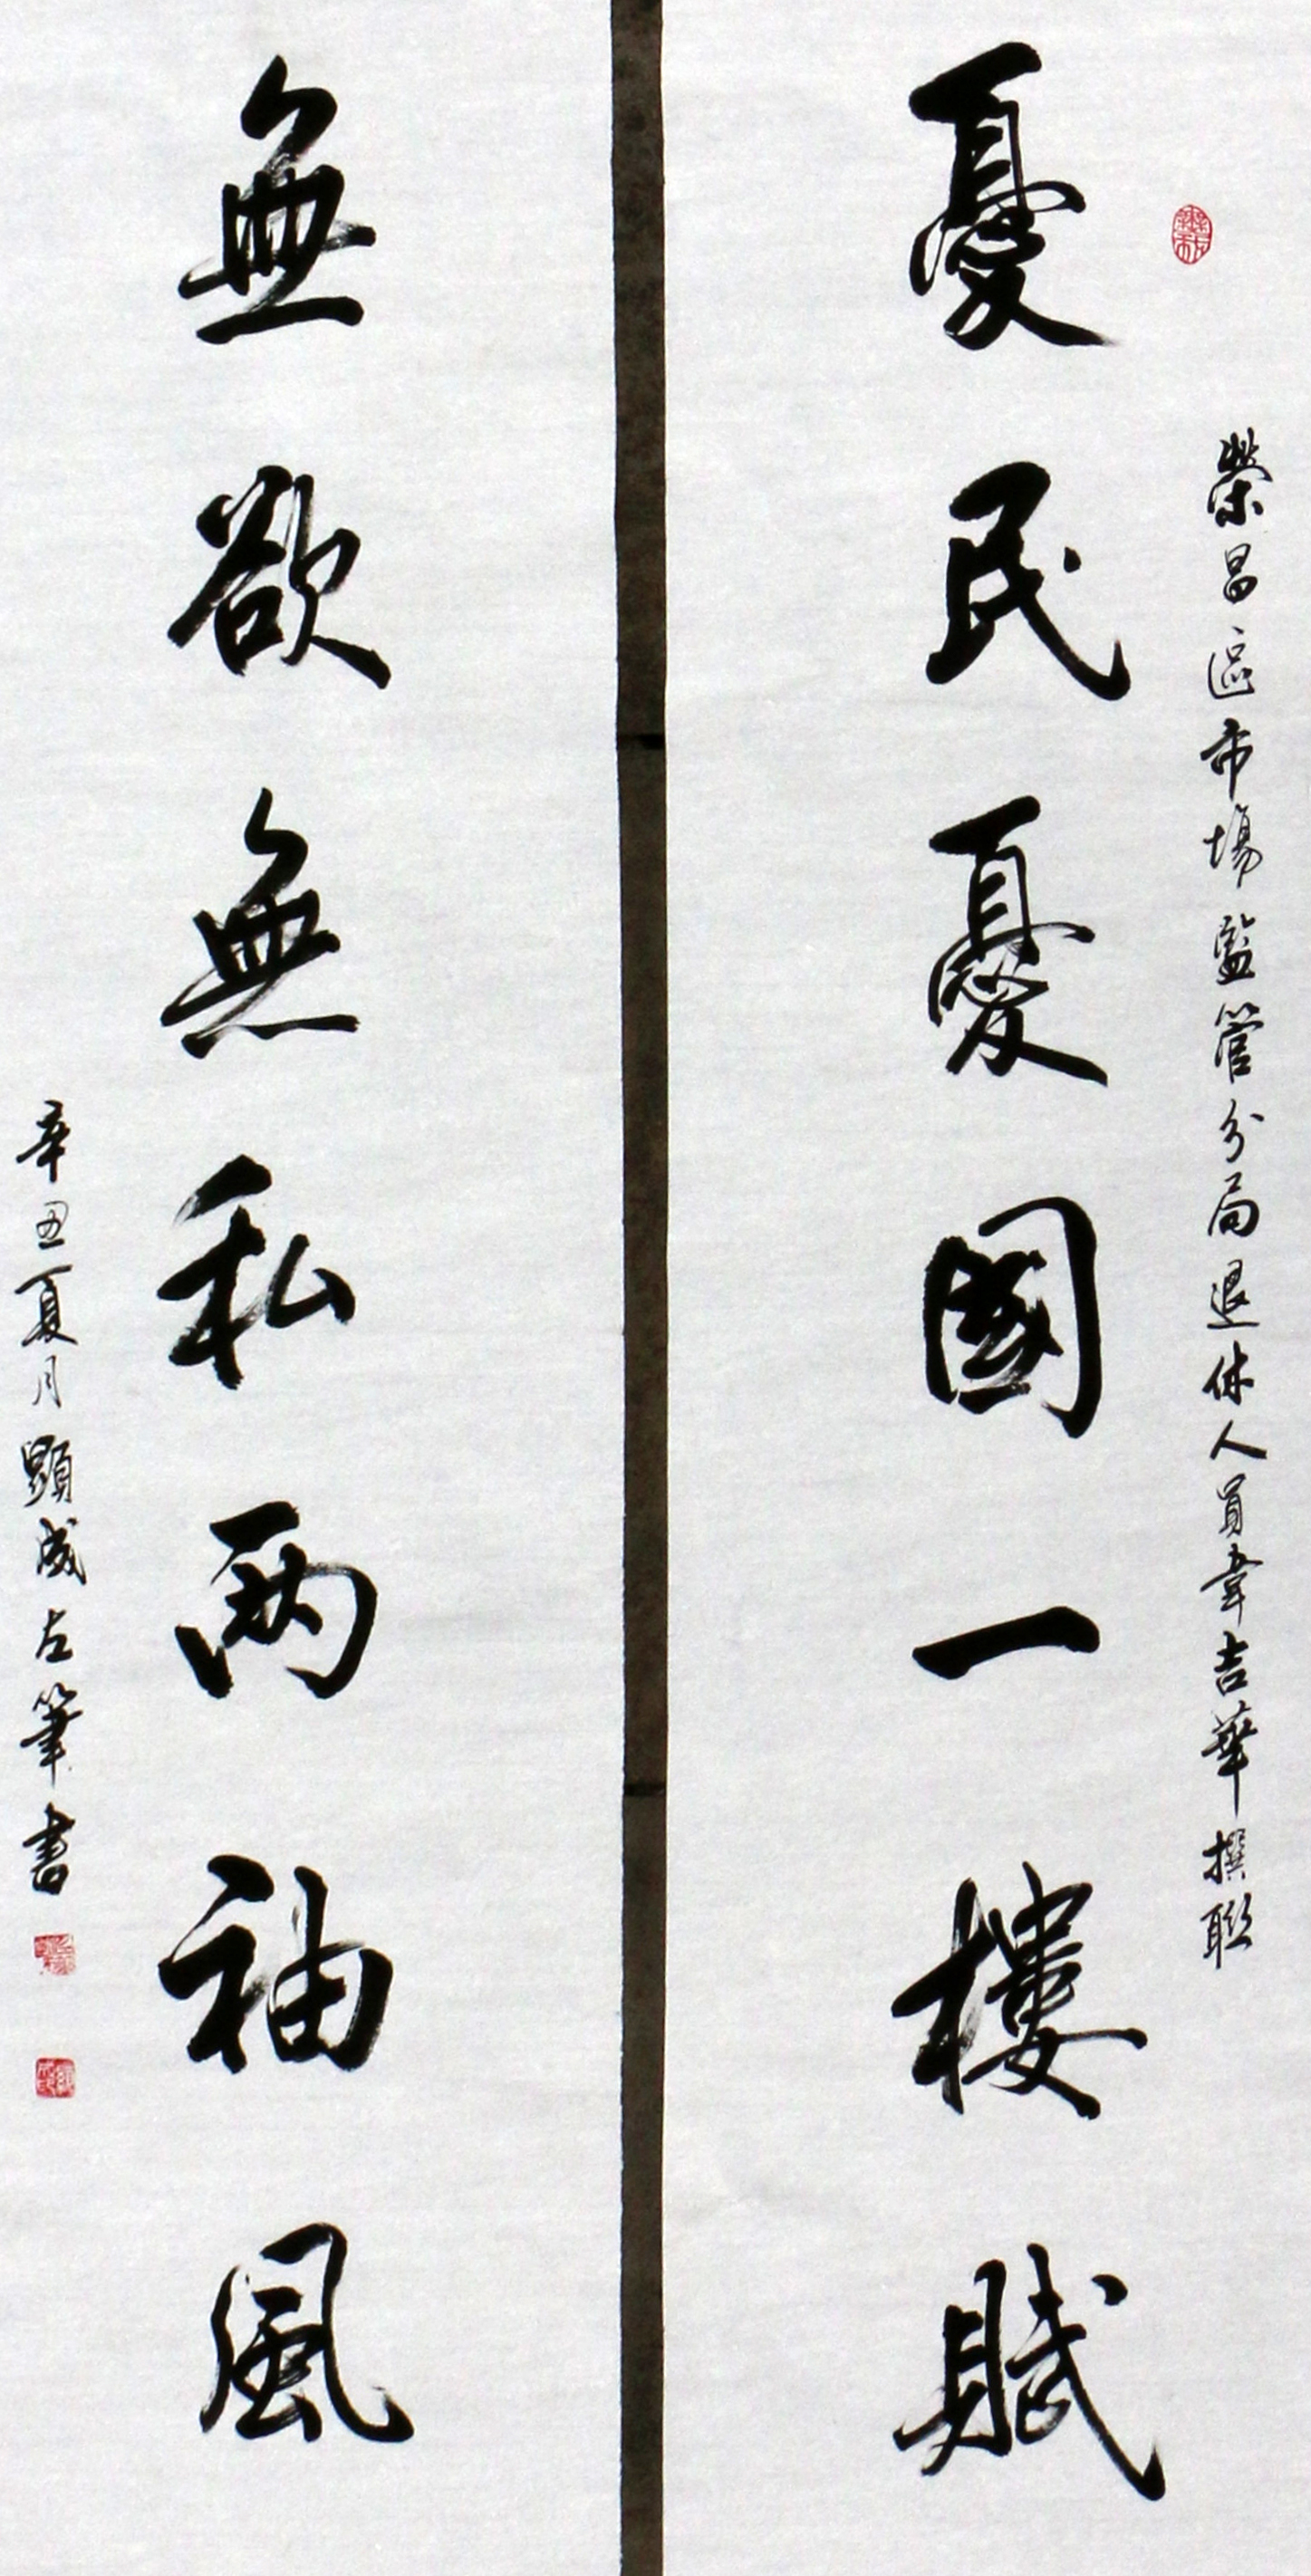 榮昌區市場監管分局退休人員韋吉華撰聯
憂民憂國一樓賦
無欲無私兩袖風
辛丑夏月顯成左筆書